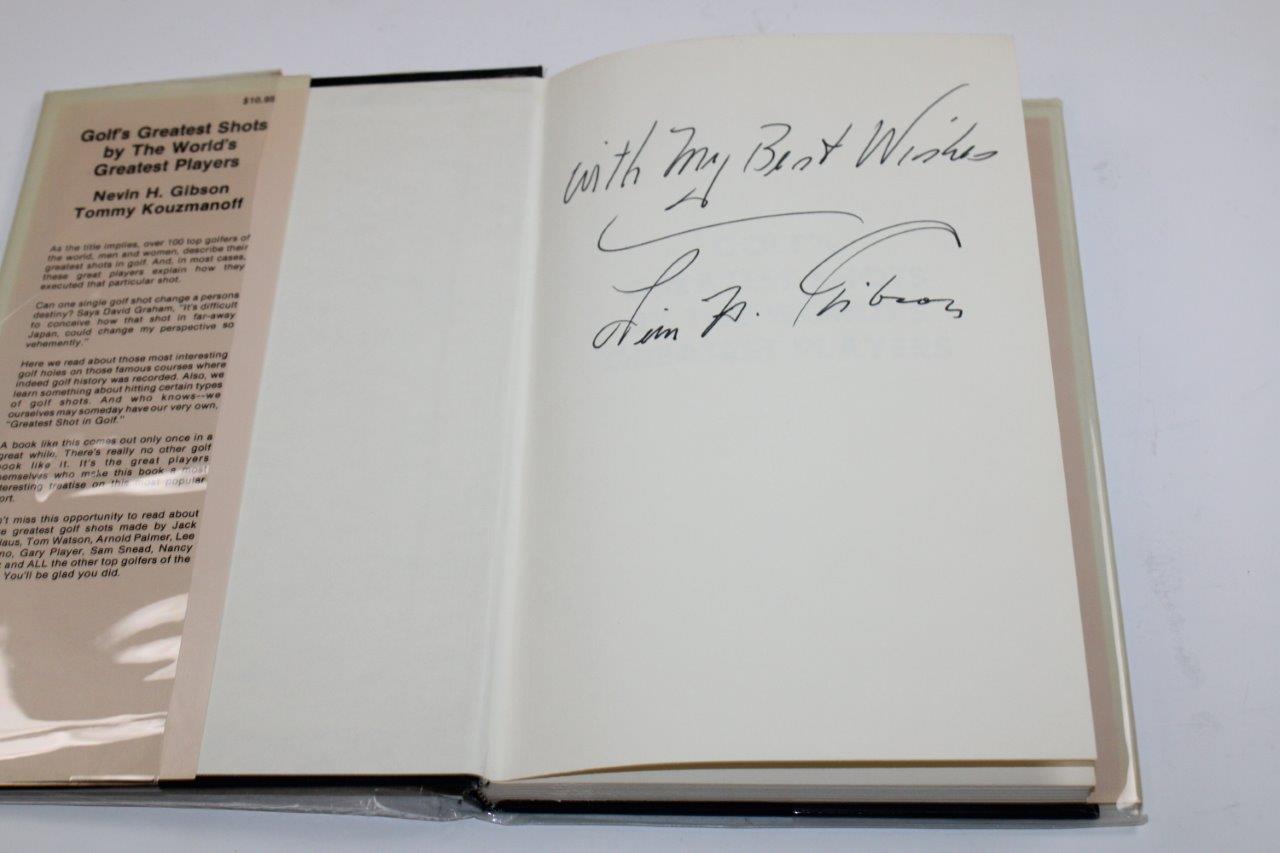 $10.95
Golf's Greatest Shots
by The World's
Greatest Players
Nevin H. Gibson
Tommy Kouzmanoff
As the title implies, over 100 top golfers of
the world, men and women, describe their
greatest shots in golf. And, in most cases,
these great players explain how they
executed that particular shot.
Can one single golf shot change a persons
destiny? Says David Graham, "It's difficult
to conceive how that shot in far-away
Japan, could change my perspective so
vehemently."
Here we read about those most interesting
golf holes on those famous courses where
indeed golf history was recorded. Also, we
learn something about hitting certain types
of golf shots. And who knows--we
ourselves may someday have our very own,
"Greatest Shot in Golf."
A book like this comes out only once in a
great while. There's really no other golf
book like it. It's the great players
themselves who make this book a most
teresting treatise on this most popular
ort.
n't miss this opportunity to read about
e greatest golf shots made by Jack
laus, Tom Watson, Arnold Palmer, Lee
no, Gary Player, Sam Snead, Nancy
and ALL the other top golfers of the
You'll be glad you did.
with My Best Wishes
H. Gibson